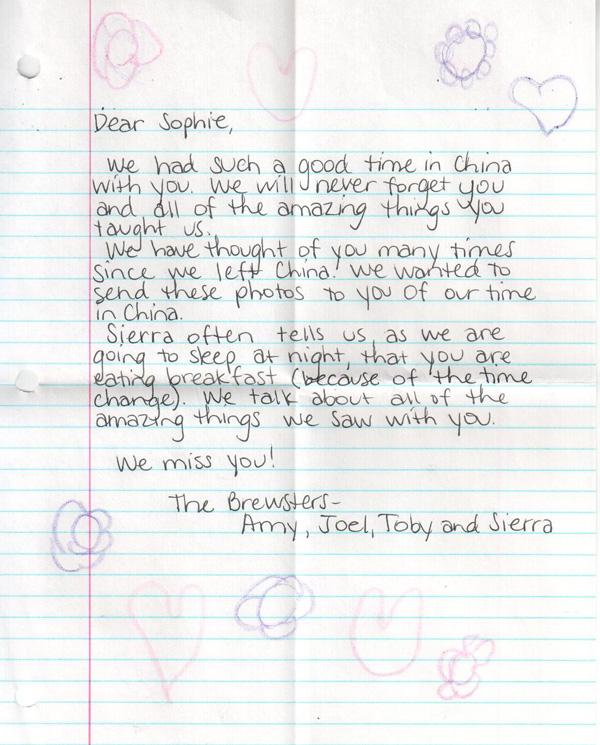 Dear Sophie,
We had such a good time in China
with you. We will never forget you
and all of the amazing things you
taught us.
We have thought of you many times
since we left China. We wanted to
send these photos to you of our time
in China.
Sierra often tells us, as we are
going to sleep at night, that you are
eating breakfast (because of the time
change). We talk about all of the
amazing things we saw with you.
We miss you!
The Brewsters-
Amy, Joel, Toby and Sierra